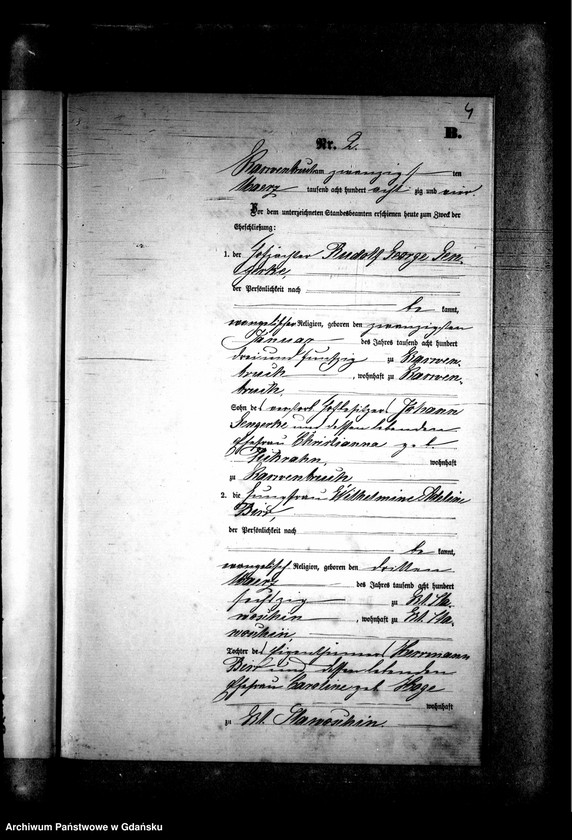 4
B.
Nr. 2.
Karwenbruch am zwanzigst ten
Maerz tausend acht hundert acht zig und
Vor dem unterzeichneten Standesbeamten erschienen heute zum Zweck der
Eheschließung:
1. der Hofpächter Rudolf George Gen-
zerke,
der Persönlichkeit nach
be kannt,
evangelischer Religion, geboren den zwanzigsten
Januar des Jahres tausend acht hundert
drei und fünfzig zu Karwen-
bruch, wohnhaft zu Karwen-
bruch,
Sohn des verstorb. Hofbesitzers Johann
Genzerke und dessen lebenden
Ehefrau Christianna geb.
wohnhaft
zu Karwenbruch
2. die Jungfrau Wilhelmine
der Persönlichkeit nach
be kannt,
evangelisch Religion, geboren den dritten
Maerz des Jahres tausend acht hundert
sechszig zu
wohnhaft zu
Tochter des Eigenthümers Herrmann
und dessen lebenden
Ehefrau Caroline geb.
wohnhaft
zu
Archiwum Państwowe w Gdańsku